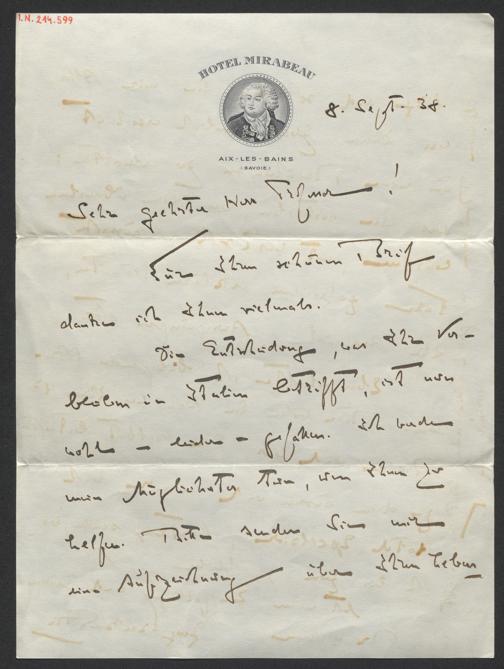 I.N. 214.599
HOTEL MIRABEAU
AIX-LES-BAINS
(SAVOIE)
8. Sept. 38.
Sehr geehrter Herr Professor!
Für Ihren schönen Brief
danke ich Ihnen vielmals.
Die Entscheidung, was Ihr Ver-
bleiben in Italien betrifft, ist nun
wohl – leider – gefallen. Ich werde
mein Möglichstes tun, um Ihnen zu
helfen. Bitte senden Sie mir
eine Aufzeichnung über Ihren Lebens